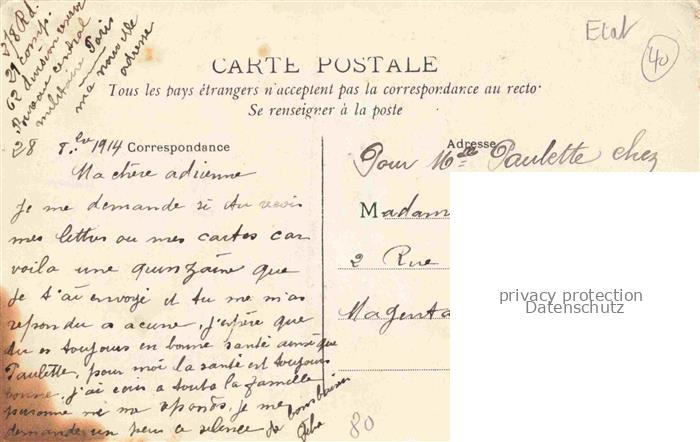 278 Rd.
21 comp.
62 division
Bureau central
militaire Paris
ma nouvelle
adresse
Etat
40
CARTE POSTALE
Tous les pays étrangers n'acceptent pas la correspondance au recto.
Se renseigner à la poste
28 1914 Correspondance
Adresse
Ma chère adrienne
Je me demande si tu recois
mes lettres ou mes cartes car
voila une quinzaine que
Je t'ai envoyé et tu me m'as
repondu a acune, j'espère que
tu es toujours en bonne santé ainsi que
Paulette, pour moi la santé est toujours
bonne, j'ai ecris a toute la famille
personne ne me reponds, je me
demande un peu ce silence
bons baisers
Pour Melle Paulette chez
Madam
2 Rue
Magenta
80
privacy protection
Datenschutz